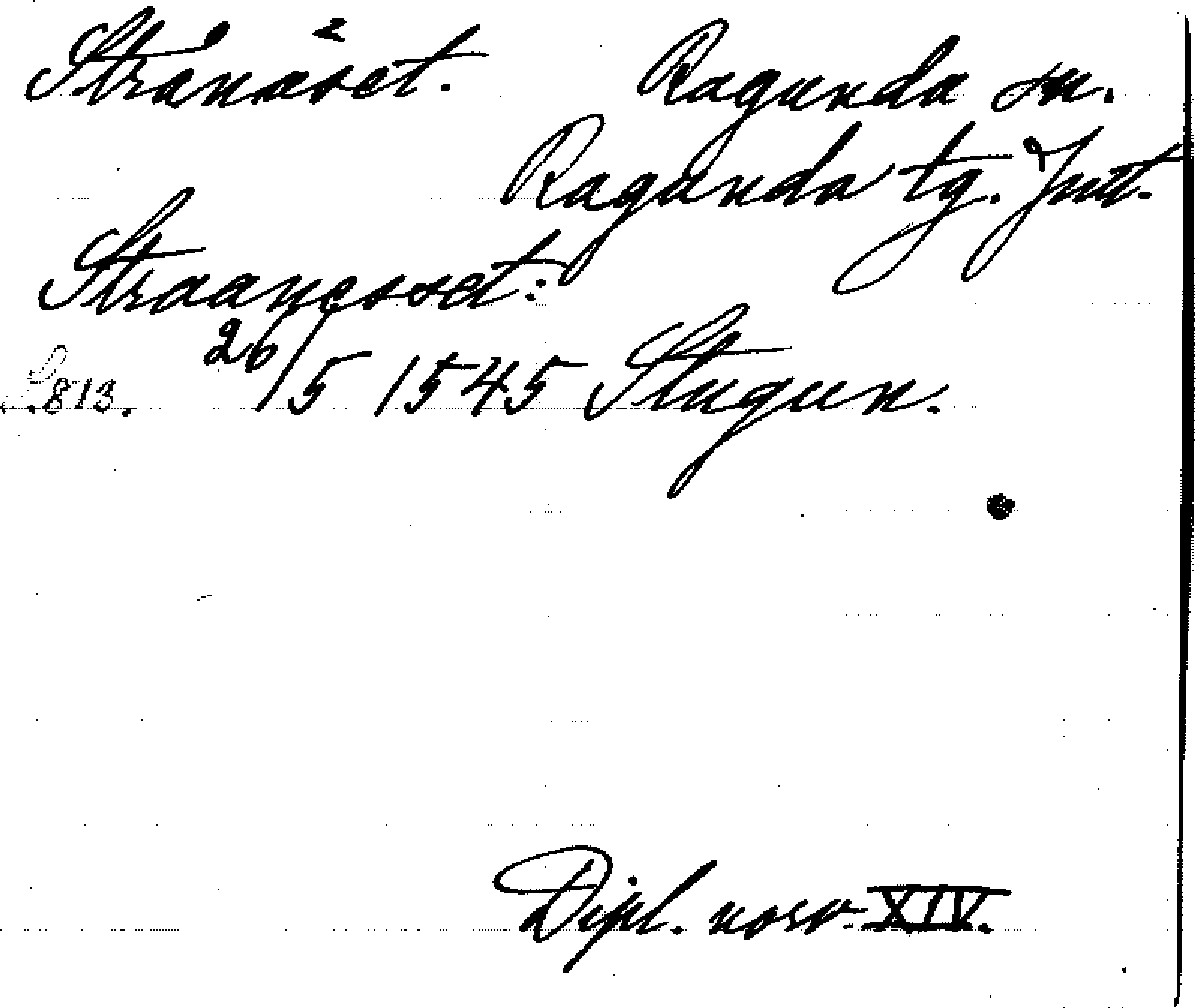 Strånäset. Ragunda sn.
Ragunda tg. Jmt.
Straanesset:
S. 813. 26/5 1545 Stugun.
Dipl. norv. XIV.